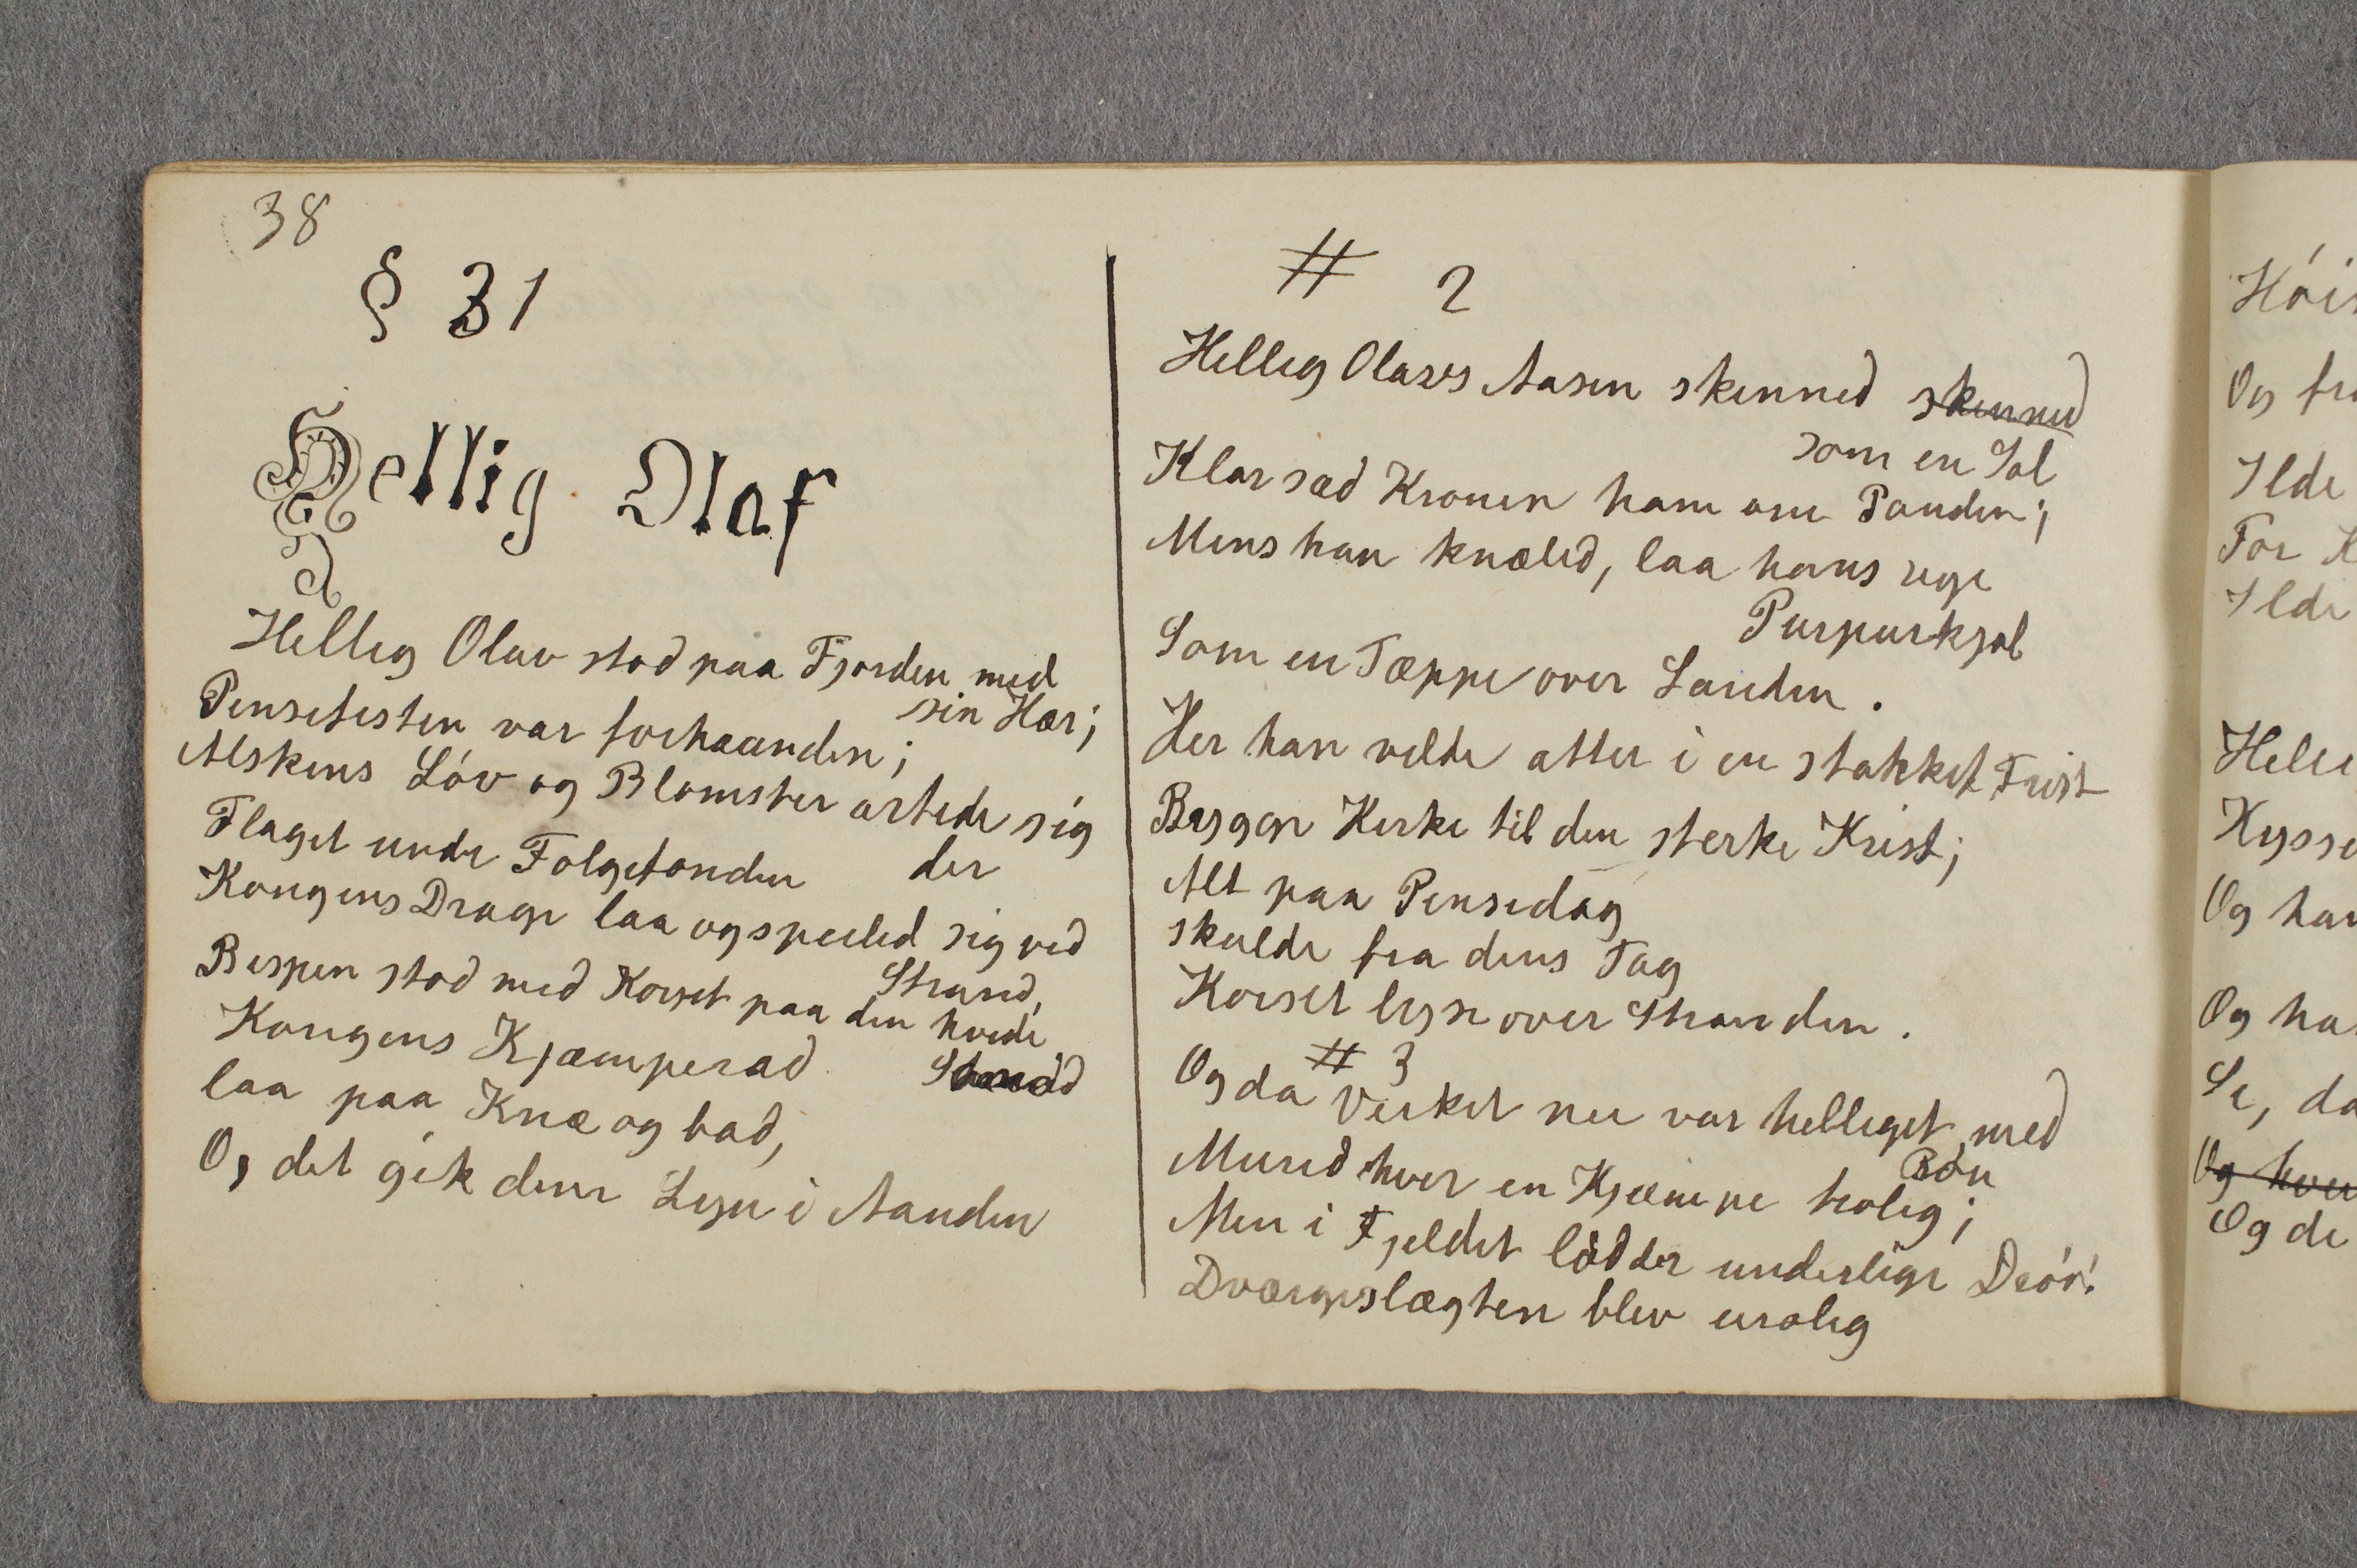 38
§ 31
Hellig Olaf
Hellig Olav stod paa Fjorden med
sin Hær;
Pinsefesten var forhaanden;
Alskens Löv og Blomster artede sig
der
Flaget under Folgefonden
Kongens Drage laa og speiled sig ved
Strand,
Bispen stod med Korset paa den hvide
Sand
Kongens Kjæmperad
laa paa Knæ og bad,
Og det gik dem Lyn i Aanden
# 2
Hellig Olavs Aasyn skinned skinned
som en Sol
Klar sad Kronen ham om Panden;
Mens han knæled, laa hans rige
Purpurkjol
Som en Tæppe over Landen.
Her han vilde atter i en stakket Frist
Bygge Kirke til den sterke Krist;
Alt paa Pinsedag
skulde fra dens Tag
Korset lyse over Stranden.
# 3
Og da Verket nu var helliget med
Bön
Mured hver en Kjæmpe trolig;
Men i Fjeldet löd der underlige Drön!
Dværgeslægten blev urolig
Höis
Og fra
Ilde
For K
Ilde
Helli
Kysse
Og han
Og ha
Se, da
Og hver
Og de